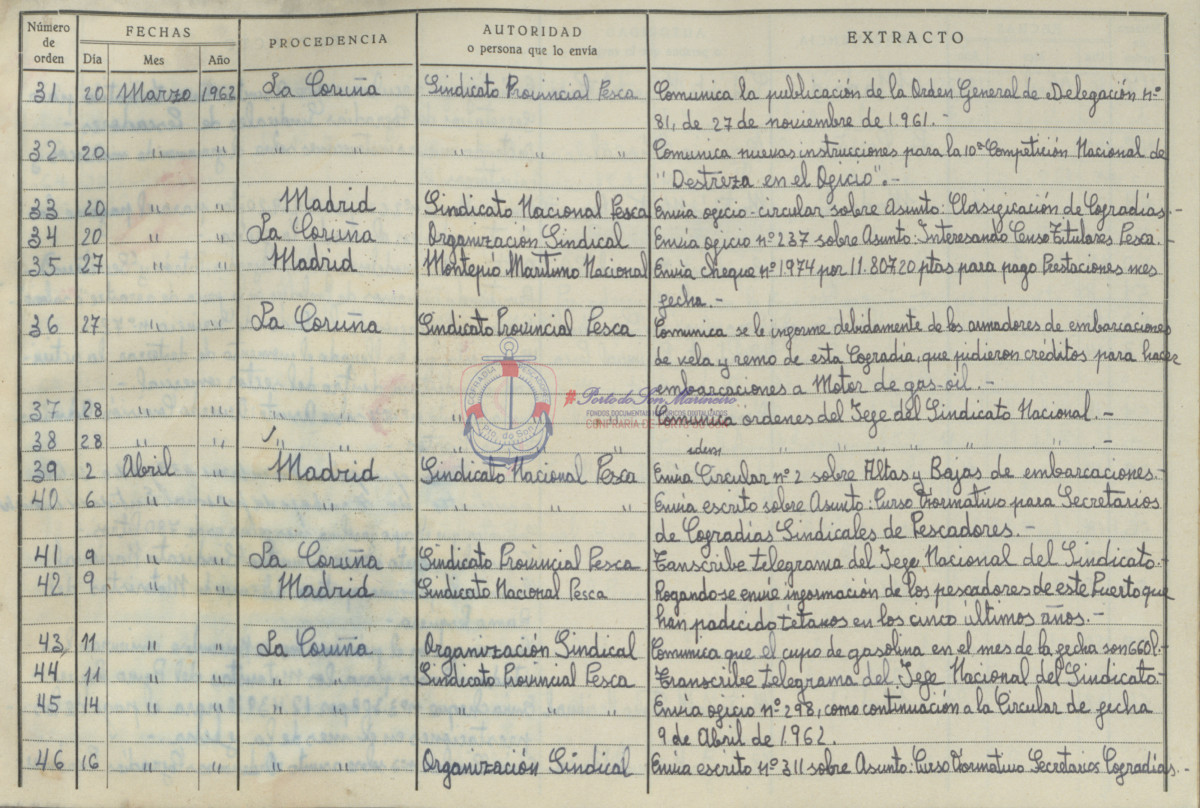 Número de orden FECHAS PROCEDENCIA AUTORIDAD o persona que lo envía EXTRACTO
Día Mes Año
31 20 Marzo 1962 La Coruña Sindicato Provincial Pesca Comunica la publicación de la Orden General de Delegación nº
81, de 27 de noviembre de 1.961.-
32 20 " " " " " " Comunica nuevas instrucciones para la 10ª Competición Nacional de
"Destreza en el Oficio".-
33 20 " " Madrid Sindicato Nacional Pesca Envia oficio-circular sobre Asunto: Clasificación de Cofradías.-
34 20 " " La Coruña Organización Sindical Envia oficio nº 237 sobre Asunto: Interesando Censo Titulares Pesca.-
35 27 " " Madrid Montepió Marítimo Nacional Envía cheque nº 1974 por 11.807,20 ptas para pago Prestaciones mes
fecha.-
36 27 " " La Coruña Sindicato Provincial Pesca Comunica se le informe debidamente de los armadores de embarcaciones
de vela y remo de esta Cofradia, que pidieron créditos para hacer
embarcaciones a Motor de gas-oil.-
37 28 " " " " " " Comunica ordenes del Jefe del Sindicato Nacional.-
38 28 " " " " " idem " " " " -
39 2 Abril " Madrid Sindicato Nacional Pesca Envia Circular nº 2 sobre Altas y Bajas de embarcaciones.-
40 6 " " " " " " " Envia escrito sobre Asunto: Curso Formativo para Secretarios
de Cofradías Sindicales de Pescadores.-
41 9 " " La Coruña Sindicato Provincial Pesca Transcribe telegrama del Jefe Nacional del Sindicato.-
42 9 " " Madrid Sindicato Nacional Pesca Rogando se envie información de los pescadores de este Puerto que
han padecido tétanos en los cinco últimos años.-
43 11 " " La Coruña Organización Sindical Comunica que el cupo de gasolina en el mes de la fecha son 660 l.-
44 11 " " " " Sindicato Provincial Pesca Transcribe telegrama del Jefe Nacional del Sindicato.-
45 14 " " " " " " " Envia oficio nº 298, como continuación a la Circular de fecha
9 de Abril de 1962.
46 16 " " " " Organización Sindical Envia escrito nº 311 sobre Asunto: Curso Formativo Secretarios Cofradías.-
CONFRARÍA PESCADORES
Pto. do Son
#Porto do Son Mariñeiro
FONDOS DOCUMENTAIS HISTÓRICOS DIGITALIZADOS
CONFRARÍA DE PORTO DO SON